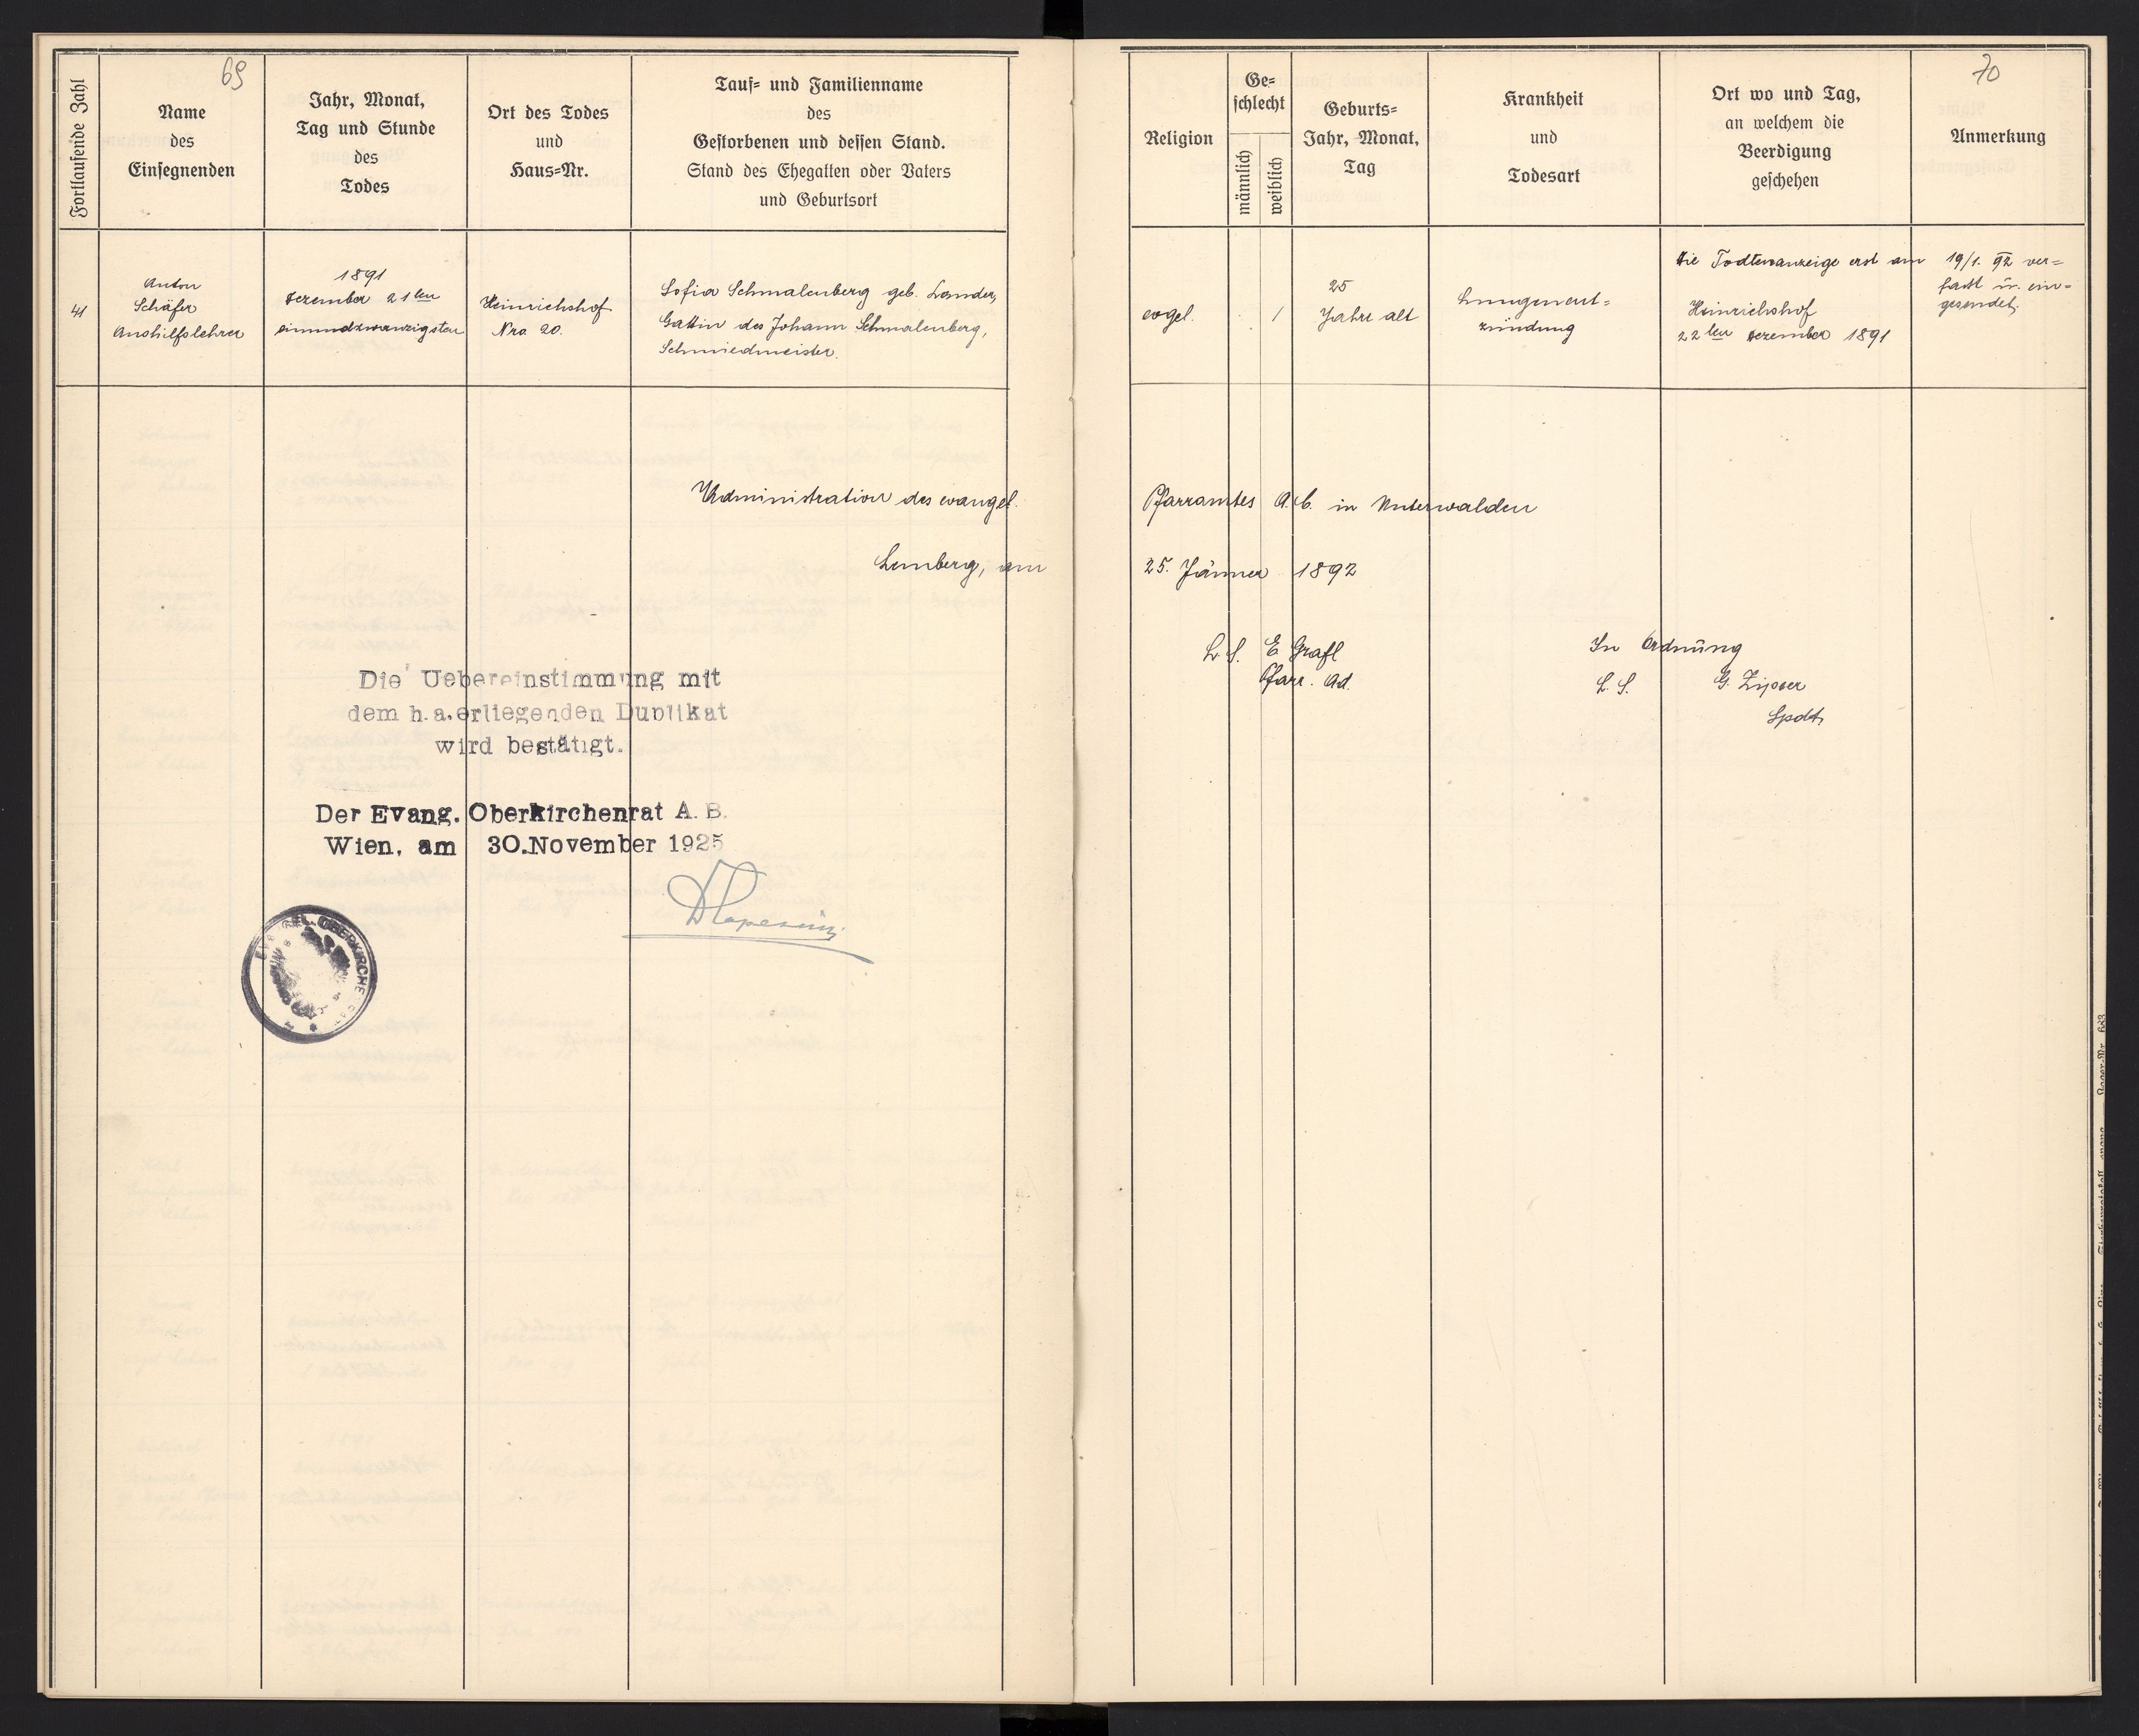 69
Fortlaufende Zahl
Name
des
Einsegnenden
Jahr, Monat,
Tag und Stunde
des
Todes
Ort des Todes
und
Haus=Nr.
Tauf= und Familienname
des
Gestorbenen und dessen Stand.
Stand des Ehegatten oder Vaters
und Geburtsort
41
Anton
Schäfer
Aushilfslehrer
1891
Dezember 21ten
einundzwanzigsten
Heinrichshof
Nro. 20.
Sofia Schmalenberg geb. Lander,
Gattin des Johann Schmalenberg,
Schmiedmeister.
Administration des evangel.
Lemberg, am
Die Uebereinstimmung mit
dem h.a.erliegenden Duplikat
wird bestätigt.
Der Evang. Oberkirchenrat A. B.
Wien, am 30.November 1925
70
Religion
Ge=
schlecht
männlich
weiblich
Geburts=
Jahr, Monat,
Tag
Krankheit
und
Todesart
Ort wo und Tag,
an welchem die
Beerdigung
geschehen
Anmerkung
evgel.
1
25
Jahre alt
Lungenent=
zündung
Die Todtenanzeige erst am 19/1. 92 ver=
faßt u. ein=
gesendet.
Heinrichshof
22ten Dezember 1891
Pfarramtes A. C. in Unterwalden
25. Jänner 1892
L. S. E Grafl
Pfarr. Ad.
In Ordnung
L. S. G. Zipser
Spdt.